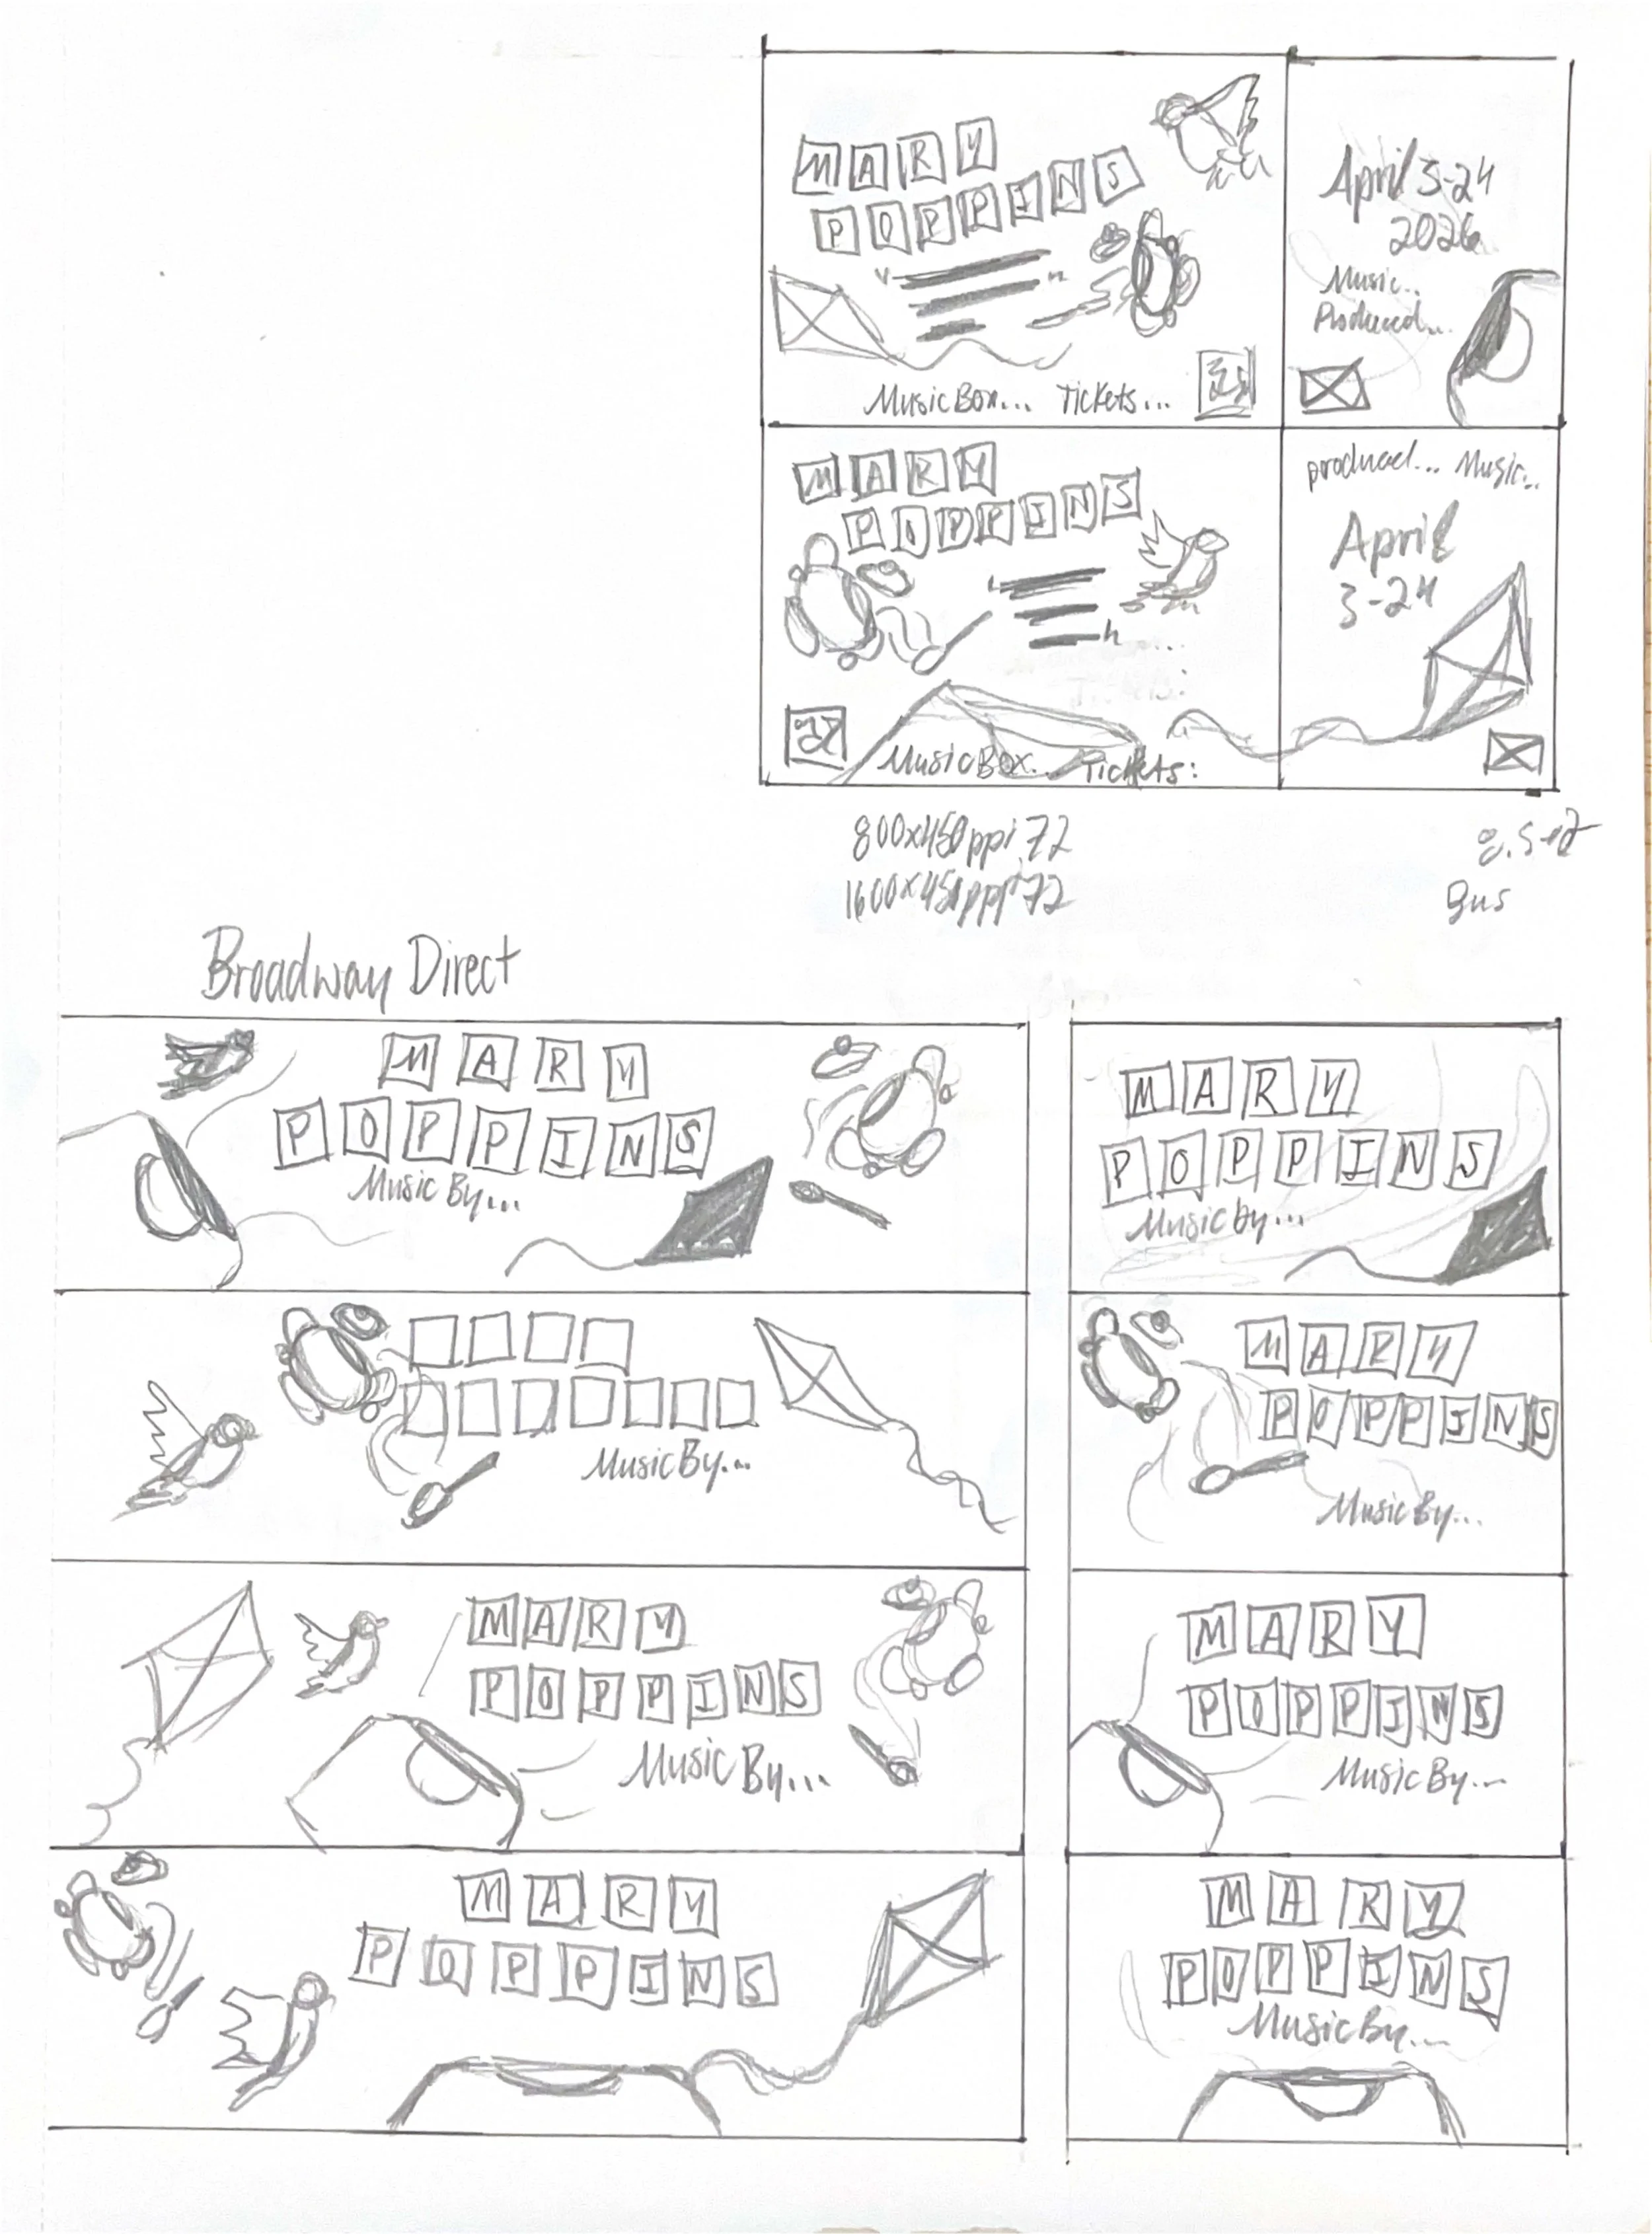 MARY
POPPINS
MusicBox... Tickets...
April 3-24
2026
Music...
Produced...
MARY
POPPINS
MusicBox... Tickets:
produced... Music...
April
3-24
800x450ppi 72
1600x450ppi 72
Bus
Broadway Direct
MARY
POPPINS
Music By...
MARY
POPPINS
Music by...
Music By...
MARY
POPPINS
Music By...
MARY
POPPINS
Music By...
MARY
POPPINS
Music By...
MARY
POPPINS
MARY
POPPINS
Music By...